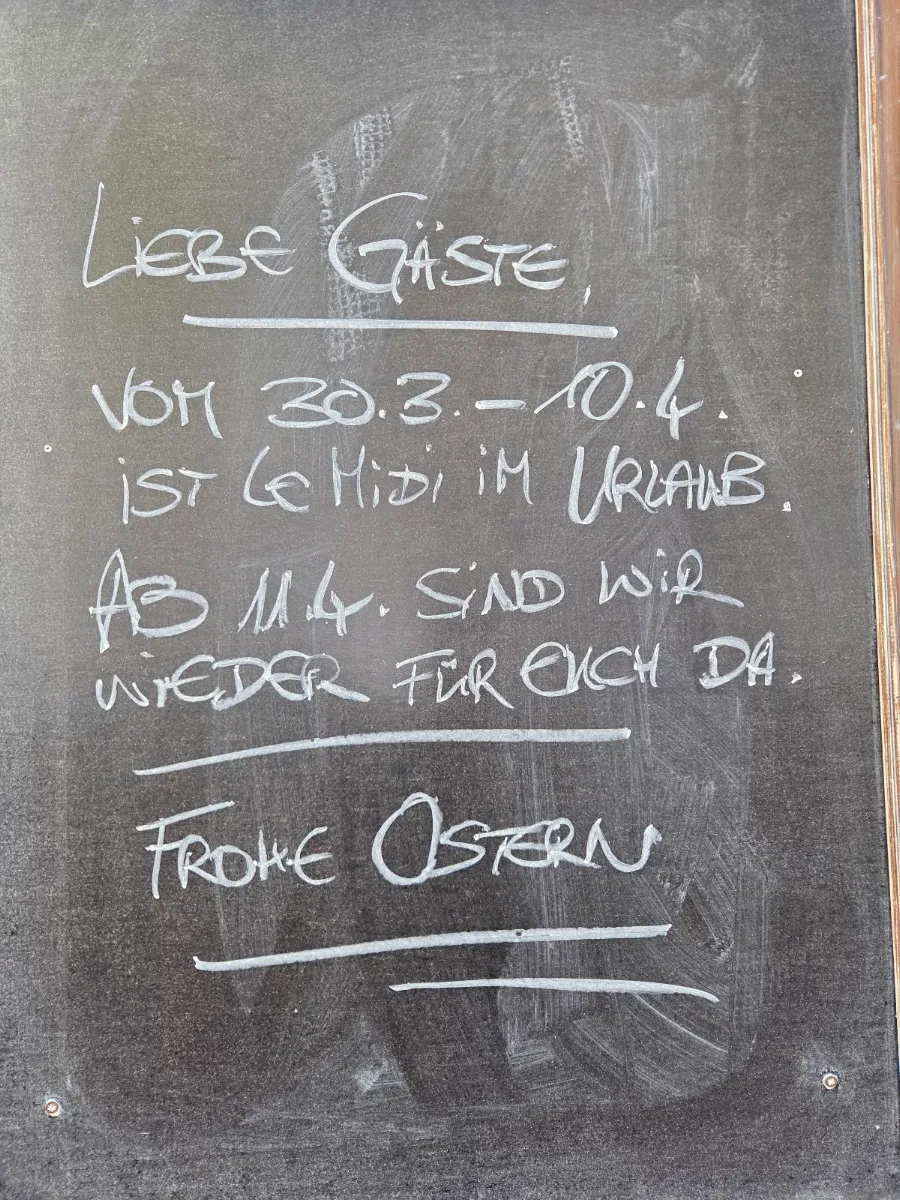 LiEBE GÄSTE,
VOM 30.3. – 10.4.
iST LE MiDi iM URLAUB.
AB 11.4. SiND WiR
WiEDER FÜR EUCH DA.
FROHE OSTERN